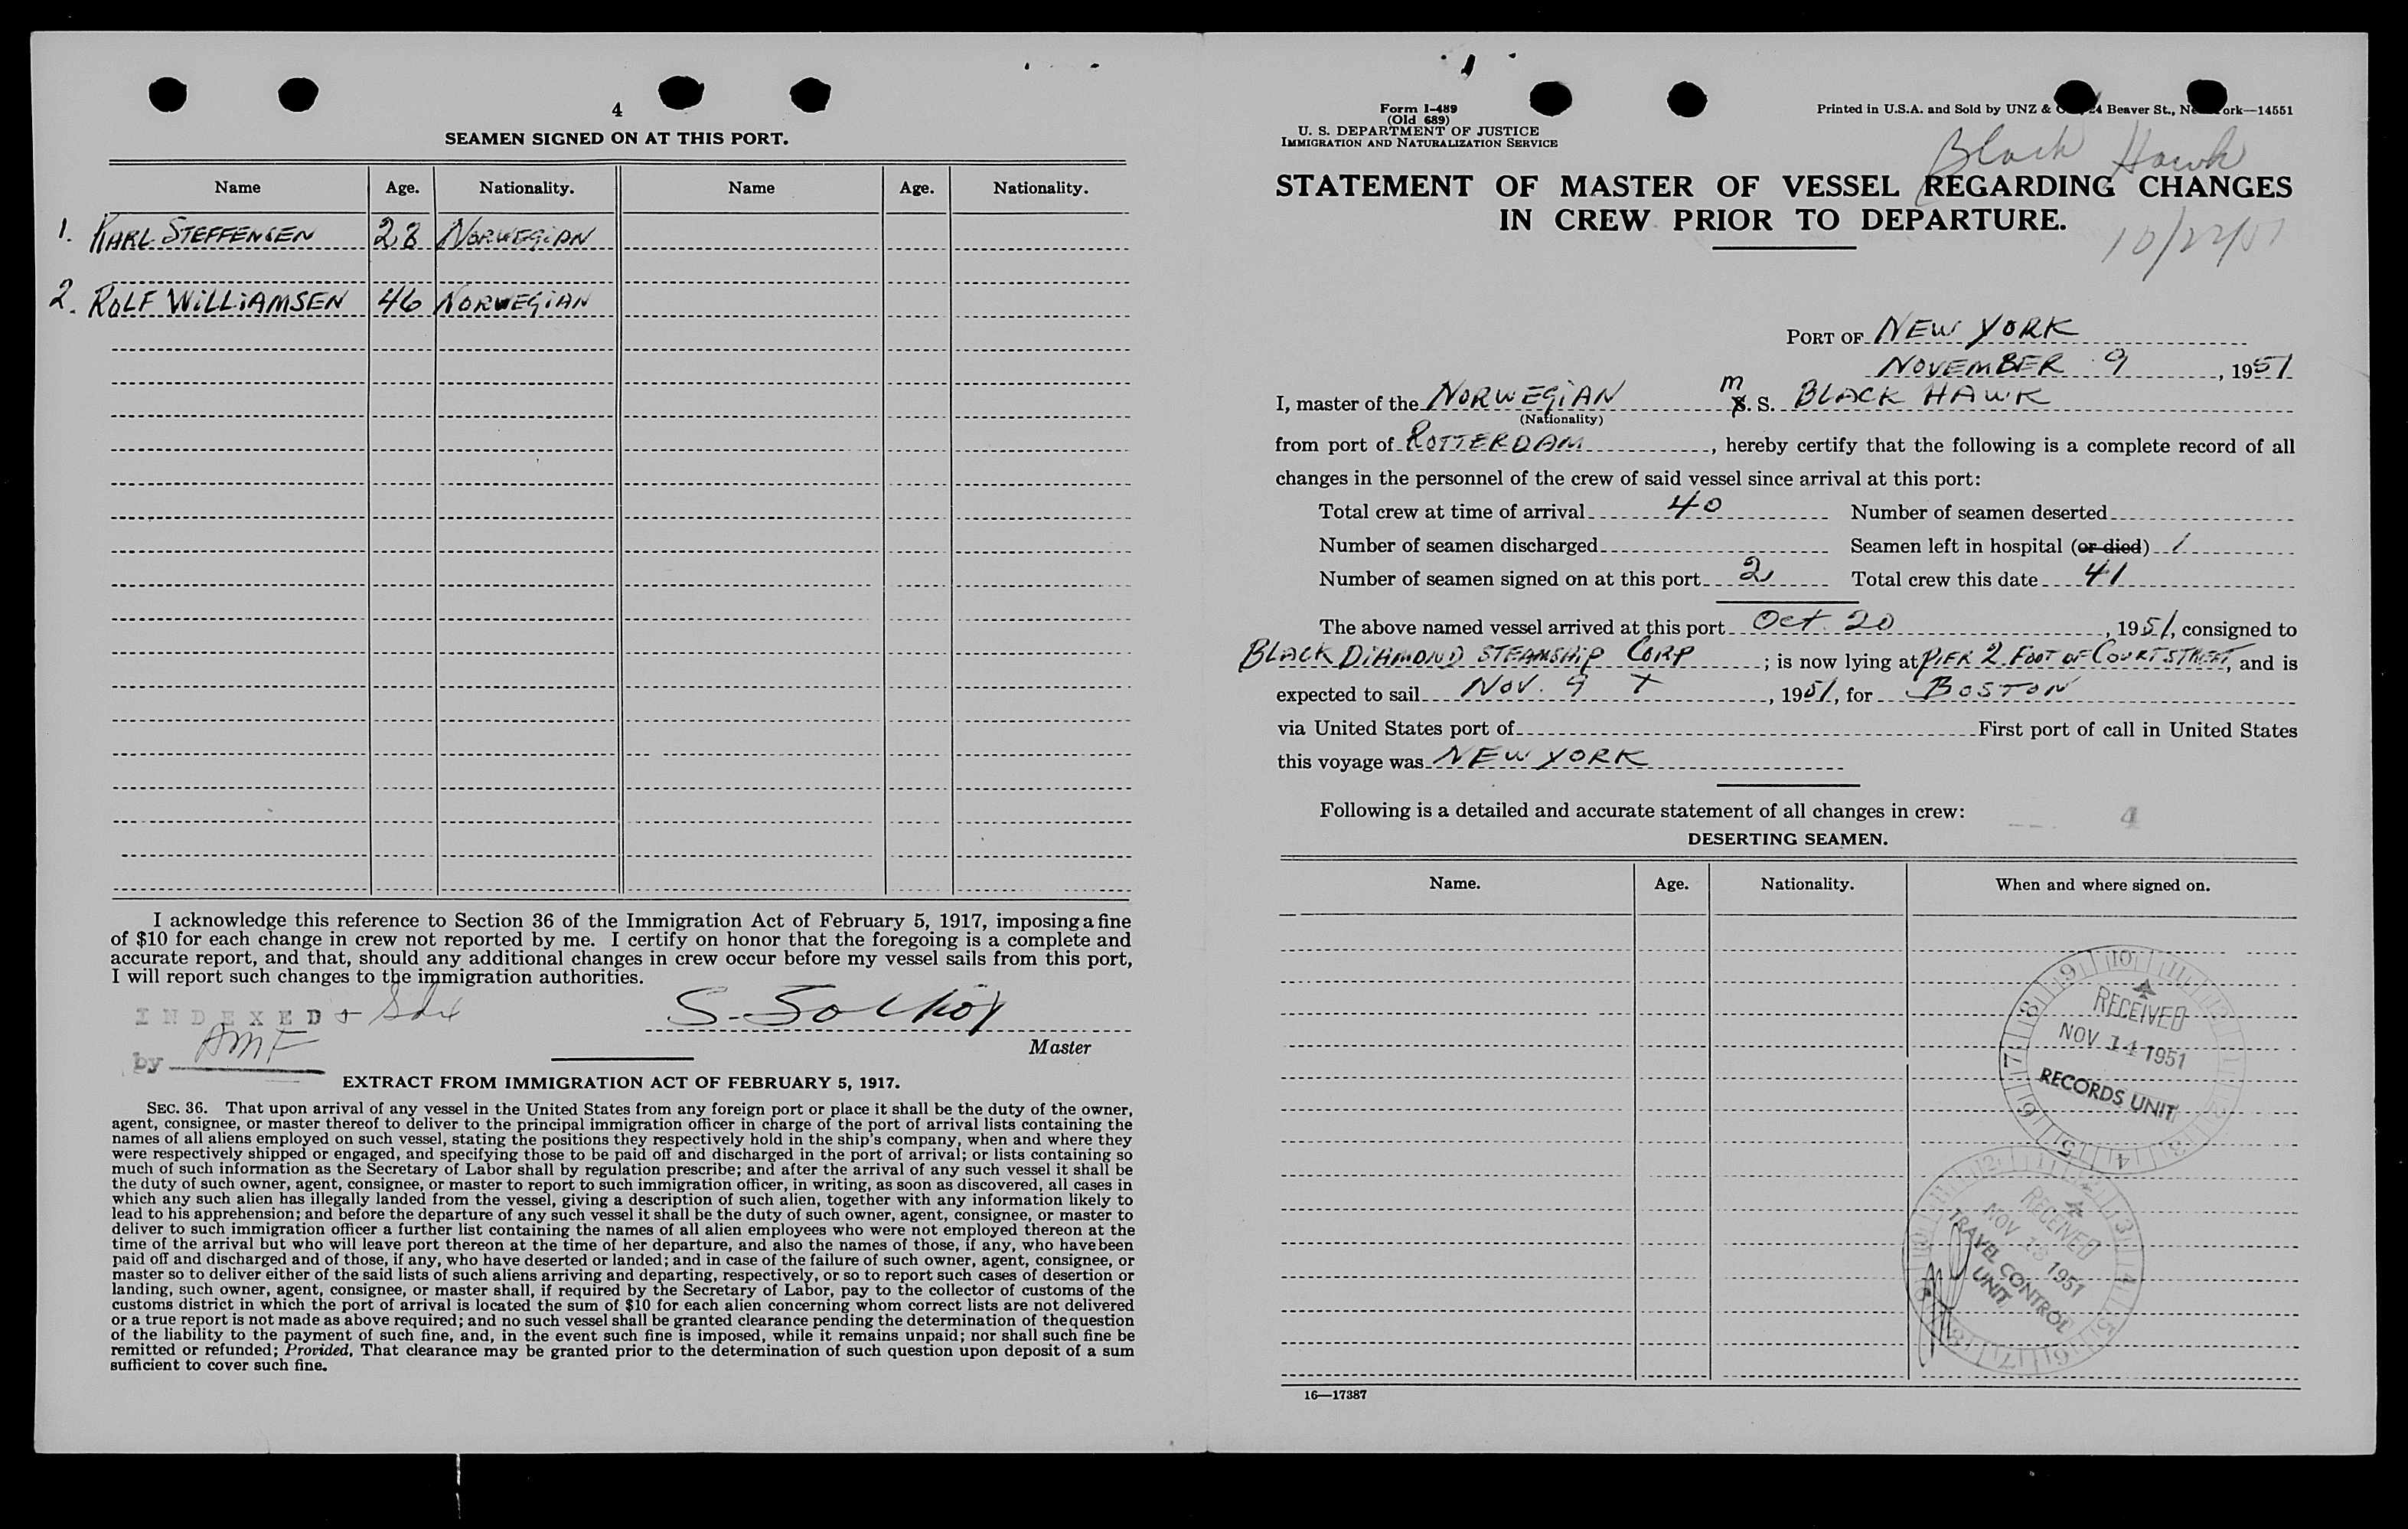 4
SEAMEN SIGNED ON AT THIS PORT.
Name Age. Nationality. Name Age. Nationality.
1. KARL STEFFENSEN 28 NORWEGIAN
2. ROLF WILLIAMSEN 46 NORWEGIAN
I acknowledge this reference to Section 36 of the Immigration Act of February 5, 1917, imposing a fine
of $10 for each change in crew not reported by me. I certify on honor that the foregoing is a complete and
accurate report, and that, should any additional changes in crew occur before my vessel sails from this port,
I will report such changes to the immigration authorities.
INDEXED +
by AMF
Master
EXTRACT FROM IMMIGRATION ACT OF FEBRUARY 5, 1917.
SEC. 36. That upon arrival of any vessel in the United States from any foreign port or place it shall be the duty of the owner,
agent, consignee, or master thereof to deliver to the principal immigration officer in charge of the port of arrival lists containing the
names of all aliens employed on such vessel, stating the positions they respectively hold in the ship's company, when and where they
were respectively shipped or engaged, and specifying those to be paid off and discharged in the port of arrival; or lists containing so
much of such information as the Secretary of Labor shall by regulation prescribe; and after the arrival of any such vessel it shall be
the duty of such owner, agent, consignee, or master to report to such immigration officer, in writing, as soon as discovered, all cases in
which any such alien has illegally landed from the vessel, giving a description of such alien, together with any information likely to
lead to his apprehension; and before the departure of any such vessel it shall be the duty of such owner, agent, consignee, or master to
deliver to such immigration officer a further list containing the names of all alien employees who were not employed thereon at the
time of the arrival but who will leave port thereon at the time of her departure, and also the names of those, if any, who have been
paid off and discharged and of those, if any, who have deserted or landed; and in case of the failure of such owner, agent, consignee, or
master so to deliver either of the said lists of such aliens arriving and departing, respectively, or so to report such cases of desertion or
landing, such owner, agent, consignee, or master shall, if required by the Secretary of Labor, pay to the collector of customs of the
customs district in which the port of arrival is located the sum of $10 for each alien concerning whom correct lists are not delivered
or a true report is not made as above required; and no such vessel shall be granted clearance pending the determination of the question
of the liability to the payment of such fine, and, in the event such fine is imposed, while it remains unpaid; nor shall such fine be
remitted or refunded; Provided, That clearance may be granted prior to the determination of such question upon deposit of a sum
sufficient to cover such fine.
Form I-489
(Old 689)
U. S. DEPARTMENT OF JUSTICE
IMMIGRATION AND NATURALIZATION SERVICE
Printed in U.S.A. and Sold by UNZ & Beaver St., New York—14551
Black Hawk
STATEMENT OF MASTER OF VESSEL REGARDING CHANGES
IN CREW PRIOR TO DEPARTURE.
10/22/51
PORT OF NEW YORK
NOVEMBER 9, 1951
I, master of the NORWEGIAN M. S. BLACK HAWK
(Nationality)
from port of ROTTERDAM, hereby certify that the following is a complete record of all
changes in the personnel of the crew of said vessel since arrival at this port:
Total crew at time of arrival 40 Number of seamen deserted
Number of seamen discharged Seamen left in hospital (or died) 1
Number of seamen signed on at this port 2 Total crew this date 41
The above named vessel arrived at this port Oct. 20, 1951, consigned to
BLACK DIAMOND STEAMSHIP CORP; is now lying at PIER 2 FOOT OF COURT STREET, and is
expected to sail Nov. 9, 1951, for BOSTON
via United States port of First port of call in United States
this voyage was NEW YORK
Following is a detailed and accurate statement of all changes in crew: 4
DESERTING SEAMEN.
Name. Age. Nationality. When and where signed on.
RECEIVED
NOV 14 1951
RECORDS UNIT
RECEIVED
NOV 13 1951
TRAVEL CONTROL
UNIT
16—17387